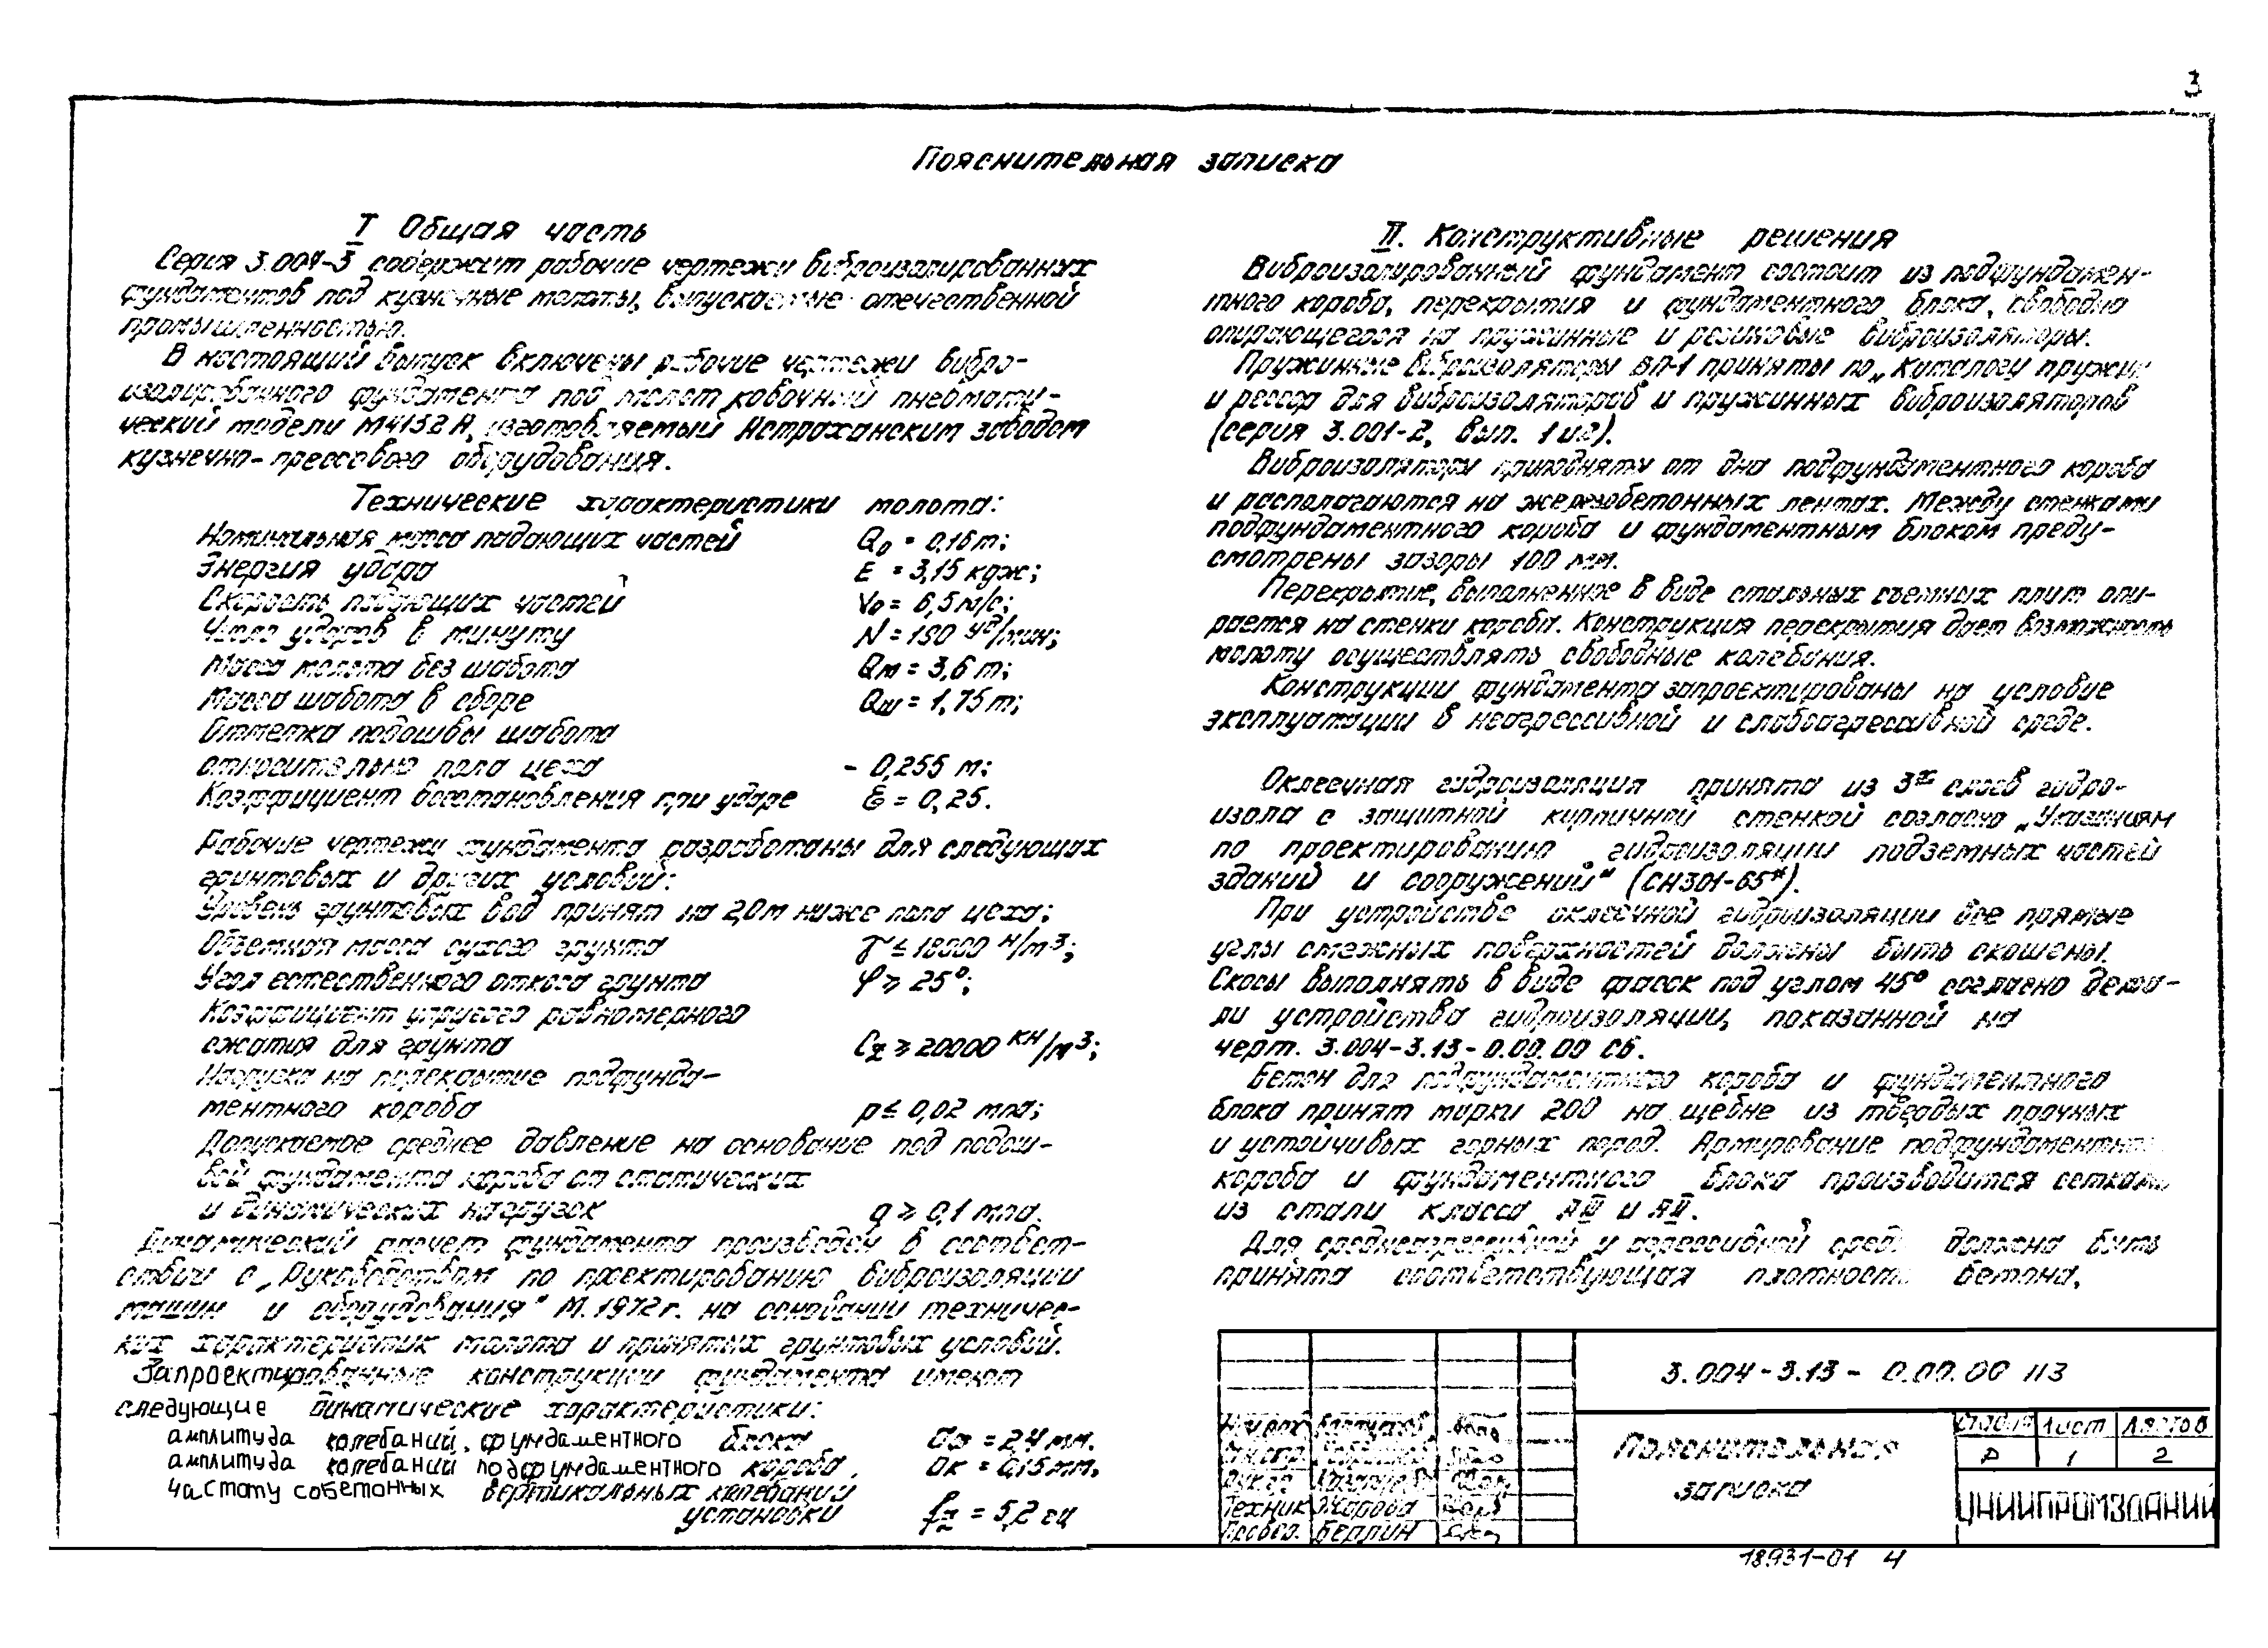 3
Пояснительная записка
I Общая часть
Серия 3.004-3 содержит рабочие чертежи виброизолированных
фундаментов под кузнечные молоты, выпускаемые отечественной
промышленностью.
В настоящий выпуск включены рабочие чертежи вибро-
изолированного фундамента под молот ковочный пневмати-
ческий модели М4132А, изготовляемый Астраханским заводом
кузнечно-прессового оборудования.
Технические характеристики молота:
Номинальная масса падающих частей Q₀ = 0,16 т;
Энергия удара E = 3,15 кдж;
Скорость падающих частей V₀ = 6,5 м/с;
Число ударов в минуту N = 190 уд/мин;
Масса молота без шабота Qм = 3,6 т;
Масса шабота в сборе Qш = 1,75 т;
Отметка подошвы шабота
относительно пола цеха - 0,255 м;
Коэффициент восстановления при ударе Ɛ = 0,25.
Рабочие чертежи фундамента разработаны для следующих
грунтовых и других условий:
Уровень грунтовых вод принят на 2,0 м ниже пола цеха;
Объемная масса сухого грунта γ ≤ 18000 н/м³;
Угол естественного откоса грунта φ ≥ 25°;
Коэффициент упругого равномерного
сжатия для грунта Cz ≥ 20000 кн/м³;
Нагрузка на перекрытие подфунда-
ментного короба p ≤ 0,02 мпа;
Допускаемое среднее давление на основание под подош-
вой фундамента короба от статических
и динамических нагрузок q ≥ 0,1 мпа.
Динамический расчет фундамента произведен в соответ-
ствии с „Руководством по проектированию виброизоляции
машин и оборудования" М. 1972 г. на основании техничес-
ких характеристик молота и принятых грунтовых условий.
Запроектированные конструкции фундамента имеют
следующие динамические характеристики:
амплитуда колебаний фундаментного блока = 2,4 мм.
амплитуда колебаний подфундаментного короба, ак = 0,15 мм,
частоту собетонных вертикальных колебаний
установки fz = 5,2 гц
II. Конструктивные решения
Виброизолированный фундамент состоит из подфундамен-
тного короба, перекрытия и фундаментного блока, свободно
опирающегося на пружинные и резиновые виброизоляторы.
Пружинные виброизоляторы ВП-1 приняты по „Каталогу пружин
и рессор для виброизоляторов и пружинных виброизоляторов
(серия 3.001-2, вып. 1 и 2).
Виброизоляторы приподняты от дна подфундаментного короба
и располагаются на железобетонных лентах. Между стенками
подфундаментного короба и фундаментным блоком преду-
смотрены зазоры 100 мм.
Перекрытие, выполненное в виде стальных съемных плит опи-
рается на стенки короба. Конструкция перекрытия дает возможность
молоту осуществлять свободные колебания.
Конструкции фундамента запроектированы на условие
эксплуатации в неагрессивной и слабоагрессивной среде.
Оклеечная гидроизоляция принята из 3х слоев гидро-
изола с защитной кирпичной стенкой согласно „Указаниям
по проектированию гидроизоляции подземных частей
зданий и сооружений" (СН301-65*).
При устройстве оклеечной гидроизоляции все прямые
углы смежных поверхностей должены быть скошены.
Скосы выполнять в виде фасок под углом 45° согласно дета-
ли устройства гидроизоляции, показанной на
черт. 3.004-3.13-0.00.00 СБ.
Бетон для подфундаментного короба и фундаментного
блока принят марки 200 на щебне из твердых прочных
и устойчивых горных пород. Армирование подфундаментно
короба и фундаментного блока производится сетками
из стали класса АIII и АI.
Для среднеагрессивной и агрессивной сред должена быть
принята соответствующая плотность бетона.
3.004-3.13 - 0.00.00 ПЗ
Пояснительная
записка
Стадия Лист Листов
Р 1 2
ЦНИИПРОМЗДАНИЙ
Техник Жарова
Провер. Берлин
18931-01 4